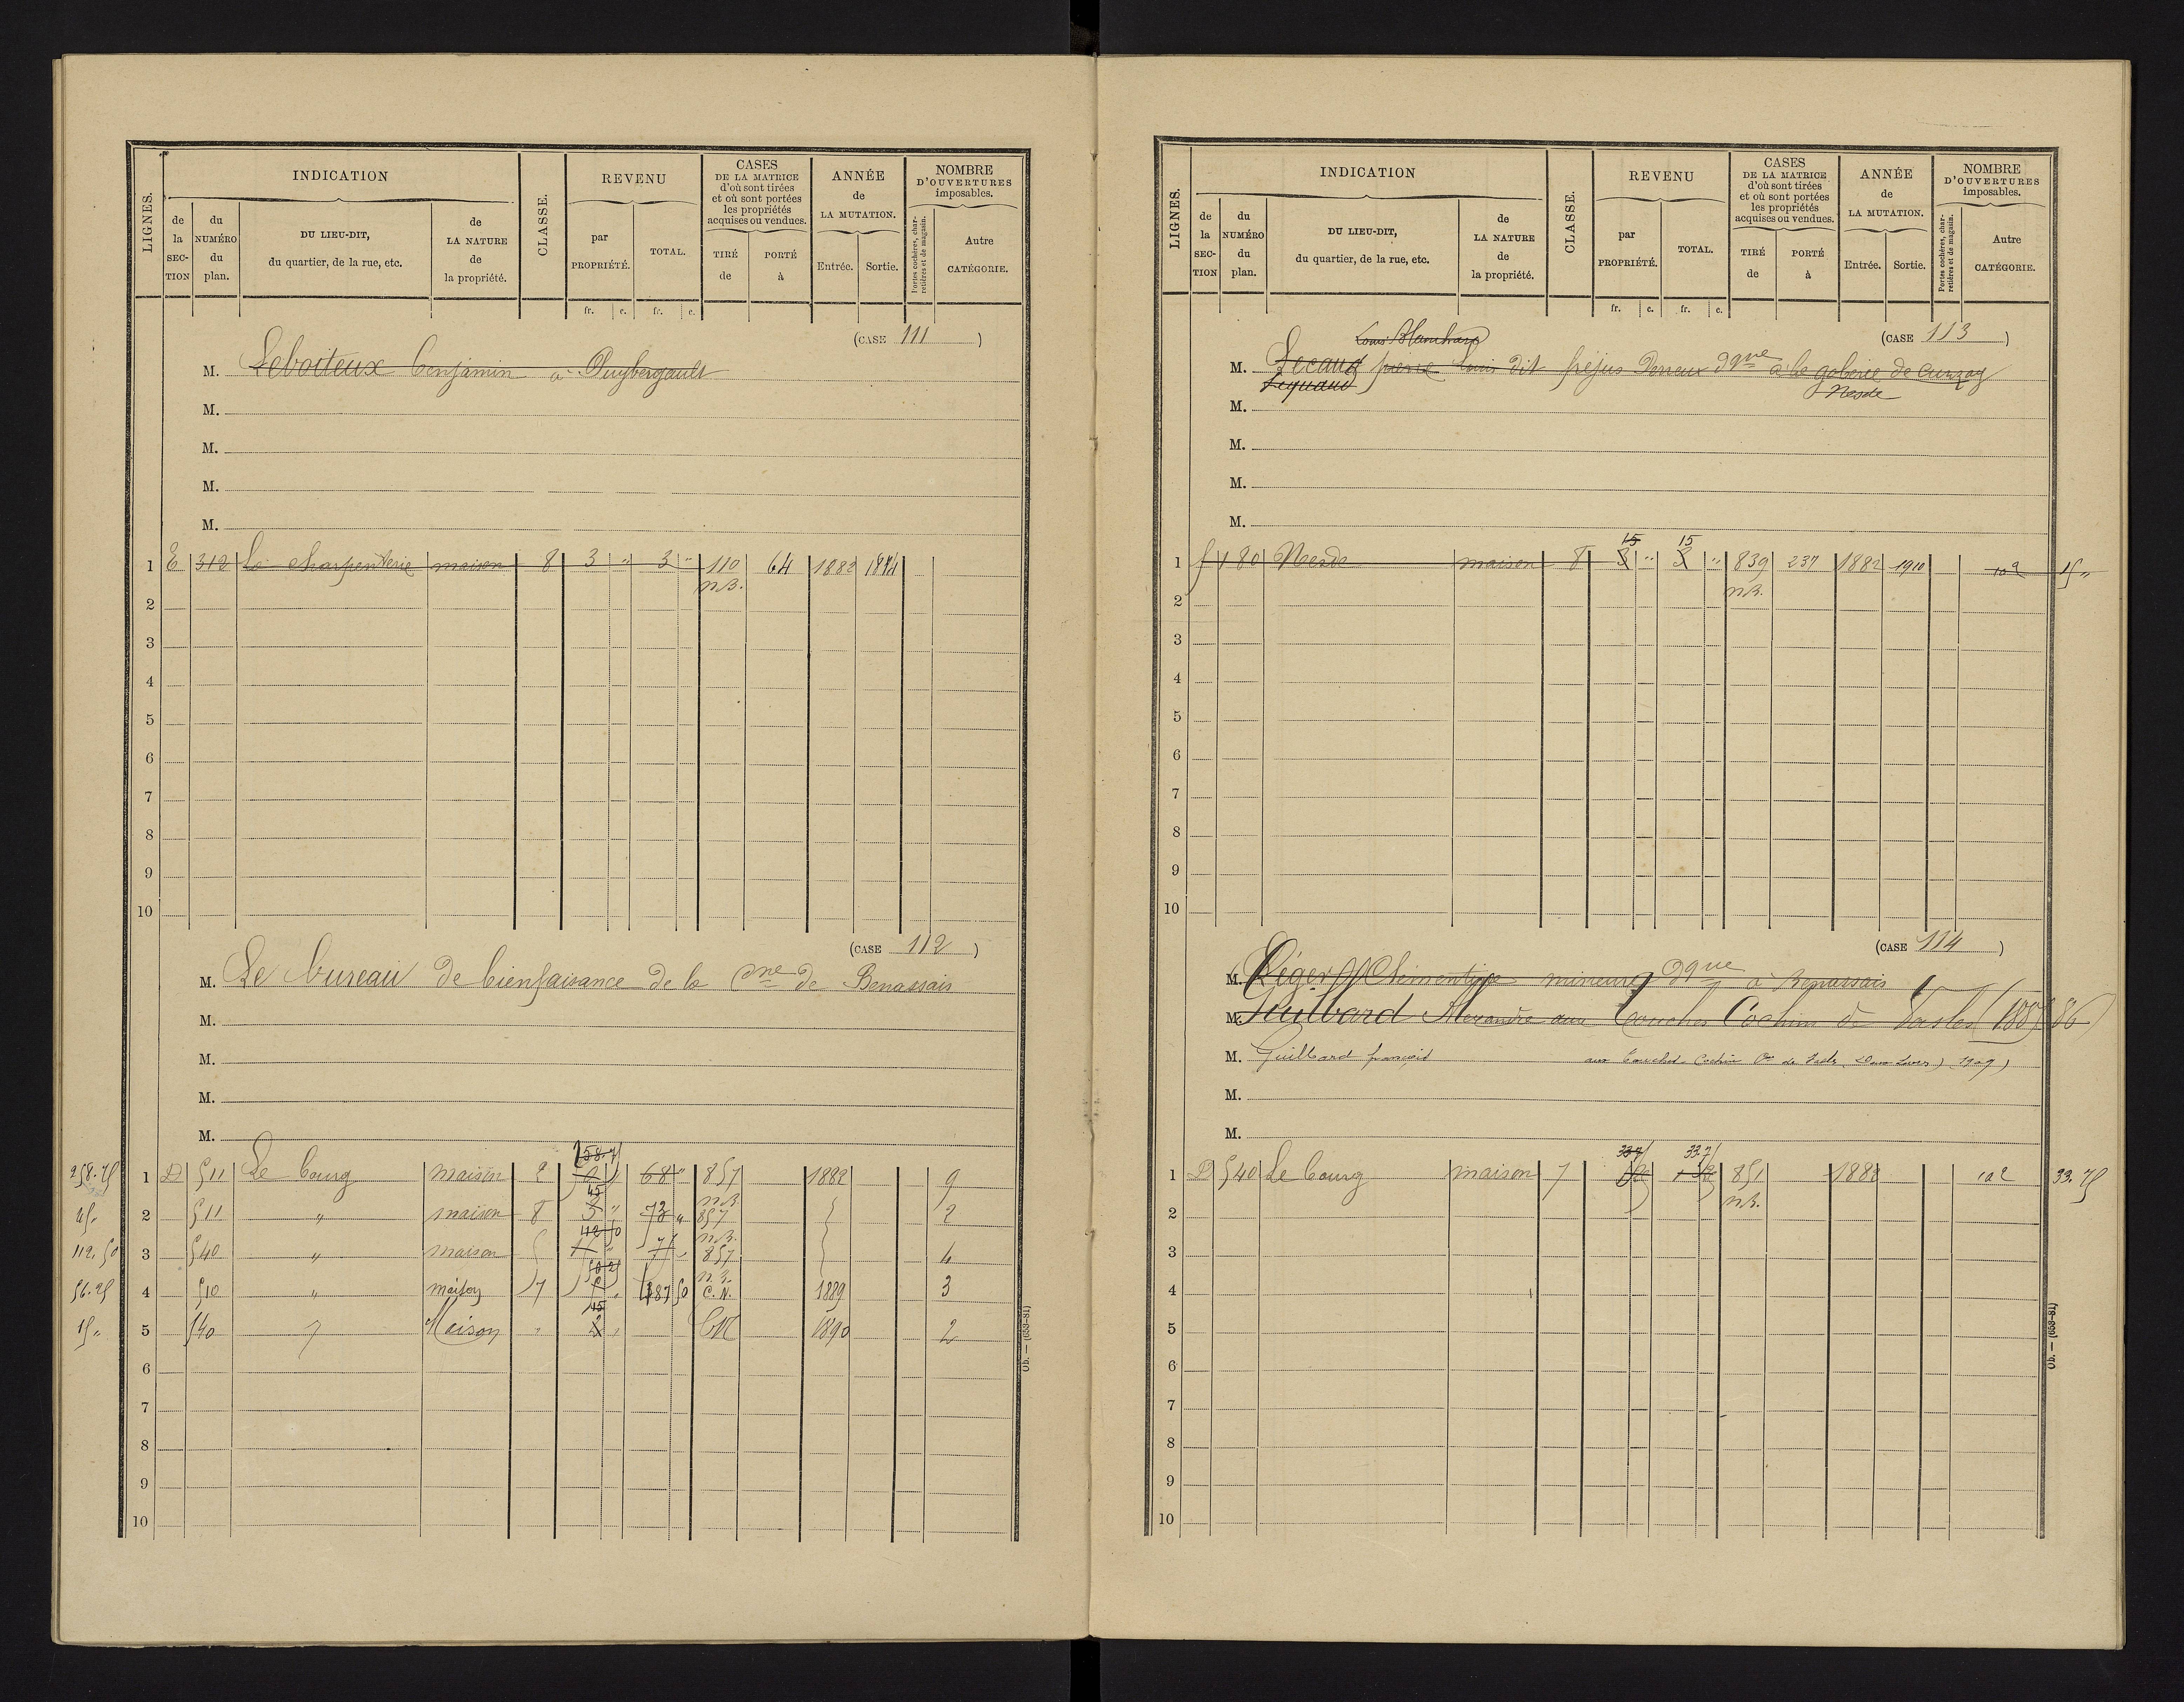 LIGNES.
INDICATION
de la SECTION
du NUMÉRO du plan.
DU LIEU-DIT, du quartier, de la rue, etc.
de LA NATURE de la propriété.
CLASSE.
REVENU
par PROPRIÉTÉ.
TOTAL.
fr. c. fr. c.
CASES DE LA MATRICE d'où sont tirées et où sont portées les propriétés acquises ou vendues.
TIRÉ de
PORTÉ à
ANNÉE de LA MUTATION.
Entrée. Sortie.
NOMBRE D'OUVERTURES imposables.
Portes cochères, charretières et de magasin.
Autre CATÉGORIE.
(CASE 111)
M. Leboiteux Benjamin à Puybergault
M.
M.
M.
M.
1 E 312 La charpenterie maison 8 3 " 3 " 110 64 1882 1884
n.B.
2
3
4
5
6
7
8
9
10
(CASE 112)
M. Le bureau de bienfaisance de la Cne de Benassais
M.
M.
M.
M.
258.75 1 D 511 Le bourg maison 2 68 " 857 1882 9
n.B.
45. 2 511 " maison 8 45 73 " 857 2
n.B.
112.50 3 540 " maison 857 4
n.B.
56.25 4 510 " maison 7 187 50 C.N. 1889 3
15 " 5 540 " Maison " 15 CN 1890 2
6
7
8
9
10
Ob. — (653-81)
LIGNES.
INDICATION
de la SECTION
du NUMÉRO du plan.
DU LIEU-DIT, du quartier, de la rue, etc.
de LA NATURE de la propriété.
CLASSE.
REVENU
par PROPRIÉTÉ.
TOTAL.
fr. c. fr. c.
CASES DE LA MATRICE d'où sont tirées et où sont portées les propriétés acquises ou vendues.
TIRÉ de
PORTÉ à
ANNÉE de LA MUTATION.
Entrée. Sortie.
NOMBRE D'OUVERTURES imposables.
Portes cochères, charretières et de magasin.
Autre CATÉGORIE.
(CASE 113)
Louis Blanchard
M. Lecaud pierre Louis dit fréjus à la goberie de Curzay
Lequaud Nesde
M.
M.
M.
M.
15 15
1 f 480 Nesde maison 8 3 " 3 " 839 237 1882 1910 15 "
n.B.
2
3
4
5
6
7
8
9
10
(CASE 114)
M. Léger Clémentine mineure dque à Benassais
M. Guilbard Alexandre aux Touches Cochin de Vasles
M. Guilbard françois aux Touches Cochin Cne de Vasles (Deux Sèvres) 1909)
M.
M.
1 D 540 Le bourg maison 7 851 1882 33.75
n.B.
2
3
4
5
6
7
8
9
10
Ob. — (653-81)